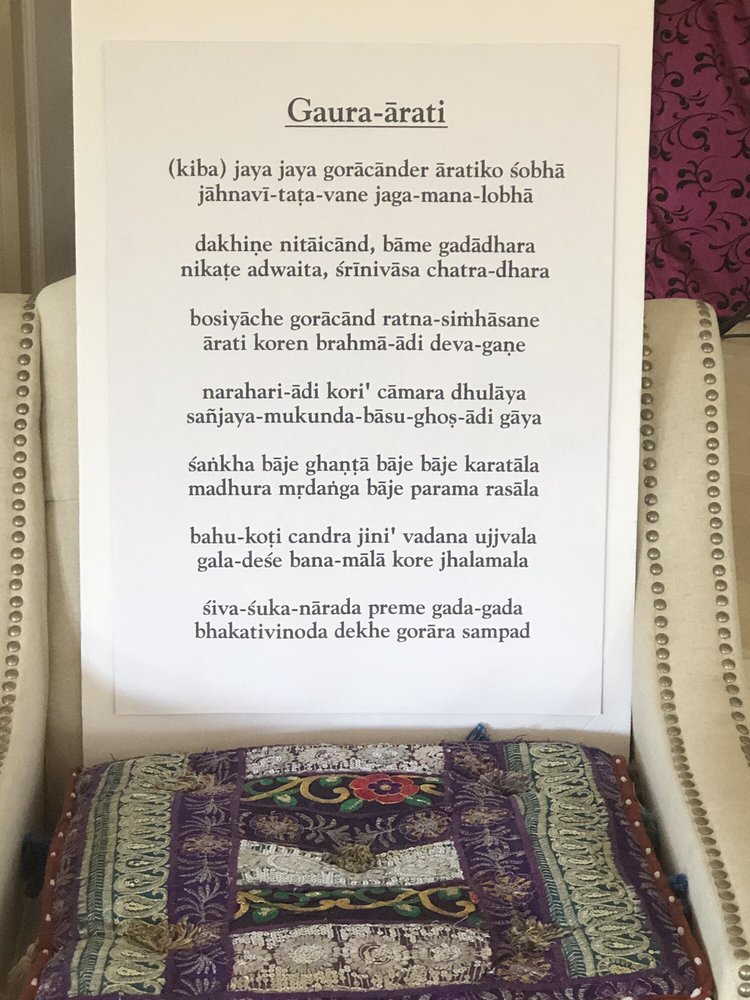 Gaura-ārati
(kiba) jaya jaya gorācānder āratiko śobhā
jāhnavī-taṭa-vane jaga-mana-lobhā
dakhiṇe nitāicānd, bāme gadādhara
nikaṭe adwaita, śrīnivāsa chatra-dhara
bosiyāche gorācānd ratna-siṁhāsane
ārati koren brahmā-ādi deva-gaṇe
narahari-ādi kori' cāmara dhulāya
sañjaya-mukunda-bāsu-ghoṣ-ādi gāya
śaṅkha bāje ghaṇṭā bāje bāje karatāla
madhura mṛdaṅga bāje parama rasāla
bahu-koṭi candra jini' vadana ujjvala
gala-deśe bana-mālā kore jhalamala
śiva-śuka-nārada preme gada-gada
bhakativinoda dekhe gorāra sampad